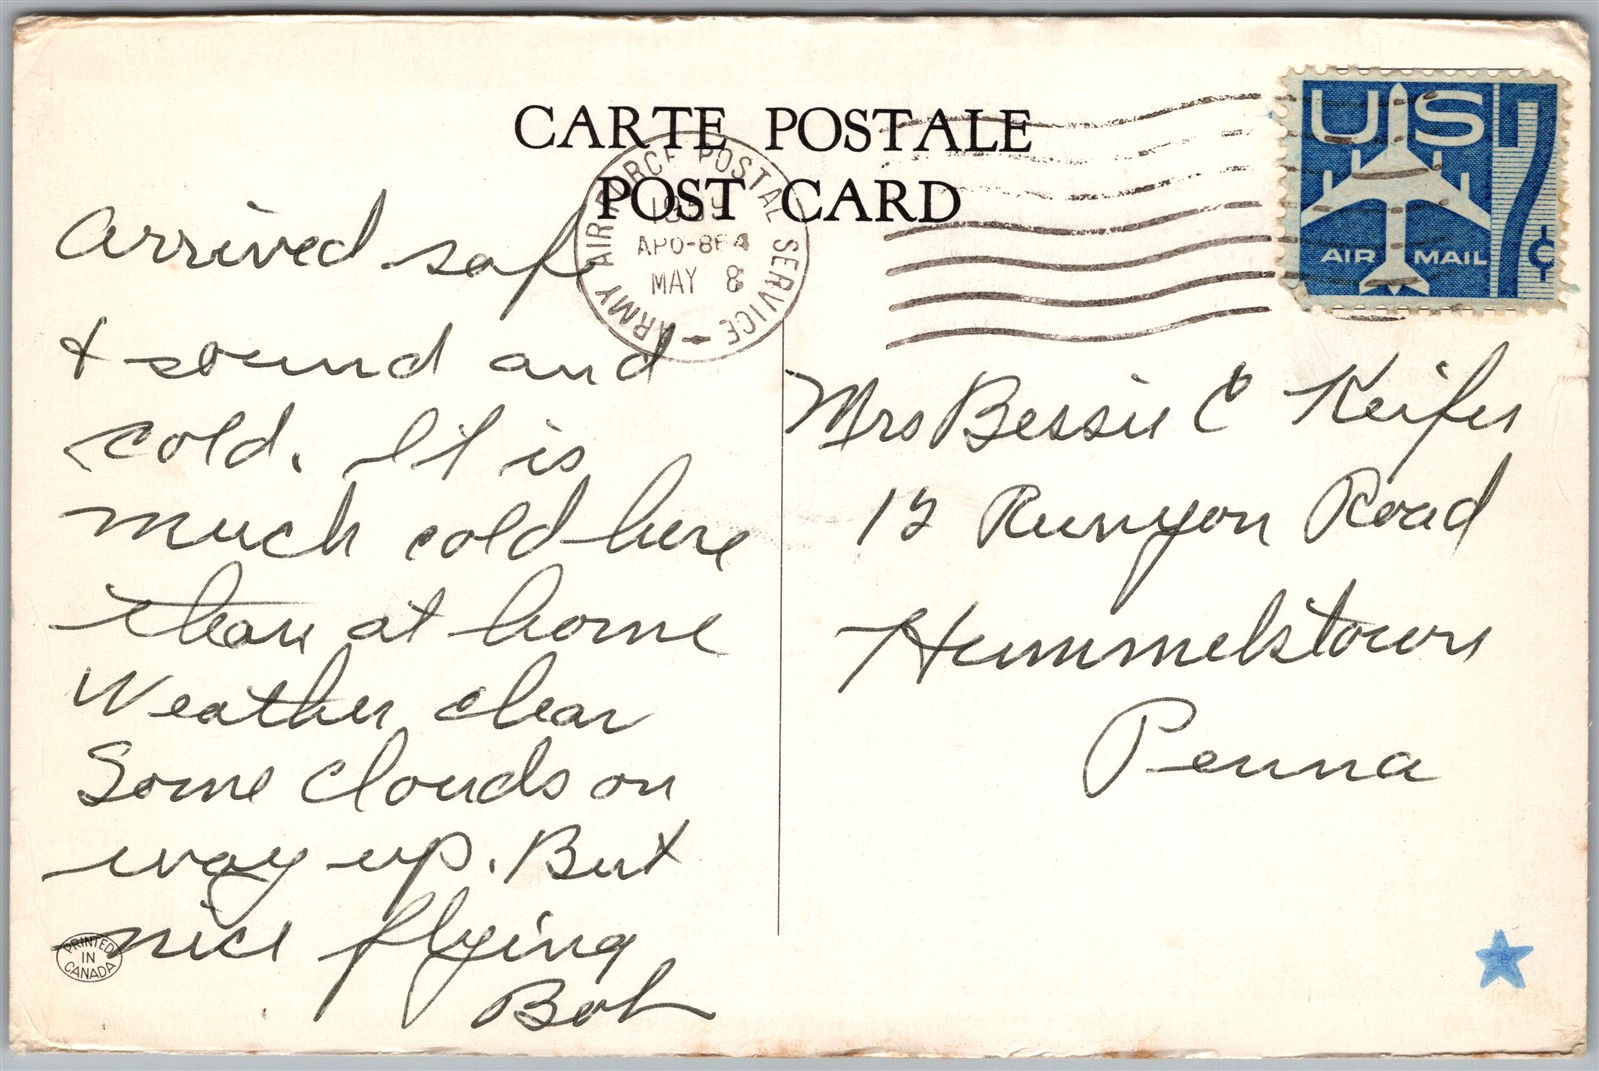 CARTE POSTALE
POST CARD
ARMY AIR FORCE POSTAL SERVICE
APO-864
MAY 8
US 7¢
AIR MAIL
Arrived safe
& sound and
cold. It is
much cold here
than at home
Weather clear
Some clouds on
way up. But
nice flying
Bob
Mrs Bessie C Keifer
12 Runyon Road
Hummelstown
Penna
PRINTED
IN
CANADA